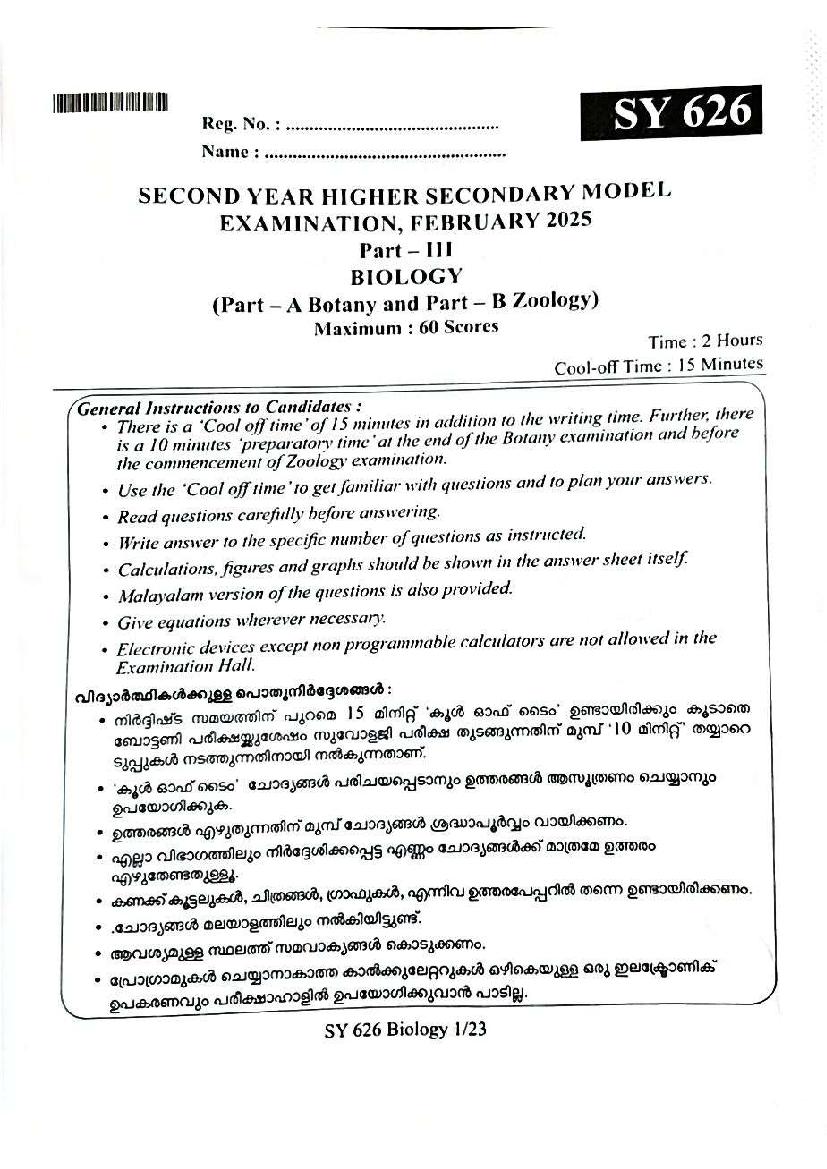 SY 626
Reg. No. : ..............................................
Name : ...................................................
SECOND YEAR HIGHER SECONDARY MODEL
EXAMINATION, FEBRUARY 2025
Part – III
BIOLOGY
(Part – A Botany and Part – B Zoology)
Maximum : 60 Scores
Time : 2 Hours
Cool-off Time : 15 Minutes
General Instructions to Candidates :
• There is a 'Cool off time' of 15 minutes in addition to the writing time. Further, there
is a 10 minutes 'preparatory time' at the end of the Botany examination and before
the commencement of Zoology examination.
• Use the 'Cool off time' to get familiar with questions and to plan your answers.
• Read questions carefully before answering.
• Write answer to the specific number of questions as instructed.
• Calculations, figures and graphs should be shown in the answer sheet itself.
• Malayalam version of the questions is also provided.
• Give equations wherever necessary.
• Electronic devices except non programmable calculators are not allowed in the
Examination Hall.
വിദ്യാർത്ഥികൾക്കുള്ള പൊതുനിർദ്ദേശങ്ങൾ :
• നിർദ്ദിഷ്ട സമയത്തിന് പുറമെ 15 മിനിറ്റ് 'കൂൾ ഓഫ് ടൈം' ഉണ്ടായിരിക്കും കൂടാതെ
ബോട്ടണി പരീക്ഷയ്ക്കുശേഷം സുവോളജി പരീക്ഷ തുടങ്ങുന്നതിന് മുമ്പ് '10 മിനിറ്റ്' തയ്യാറെ
ടുപ്പുകൾ നടത്തുന്നതിനായി നൽകുന്നതാണ്.
• 'കൂൾ ഓഫ് ടൈം' ചോദ്യങ്ങൾ പരിചയപ്പെടാനും ഉത്തരങ്ങൾ ആസൂത്രണം ചെയ്യാനും
ഉപയോഗിക്കുക.
• ഉത്തരങ്ങൾ എഴുതുന്നതിന് മുമ്പ് ചോദ്യങ്ങൾ ശ്രദ്ധാപൂർവ്വം വായിക്കണം.
• എല്ലാ വിഭാഗത്തിലും നിർദ്ദേശിക്കപ്പെട്ട എണ്ണം ചോദ്യങ്ങൾക്ക് മാത്രമേ ഉത്തരം
എഴുതേണ്ടതുള്ളൂ.
• കണക്ക് കൂട്ടലുകൾ, ചിത്രങ്ങൾ, ഗ്രാഫുകൾ, എന്നിവ ഉത്തരപേപ്പറിൽ തന്നെ ഉണ്ടായിരിക്കണം.
• .ചോദ്യങ്ങൾ മലയാളത്തിലും നൽകിയിട്ടുണ്ട്.
• ആവശ്യമുള്ള സ്ഥലത്ത് സമവാക്യങ്ങൾ കൊടുക്കണം.
• പ്രോഗ്രാമുകൾ ചെയ്യാനാകാത്ത കാൽക്കുലേറ്ററുകൾ ഒഴികെയുള്ള ഒരു ഇലക്ട്രോണിക്
ഉപകരണവും പരീക്ഷാഹാളിൽ ഉപയോഗിക്കുവാൻ പാടില്ല.
SY 626 Biology 1/23